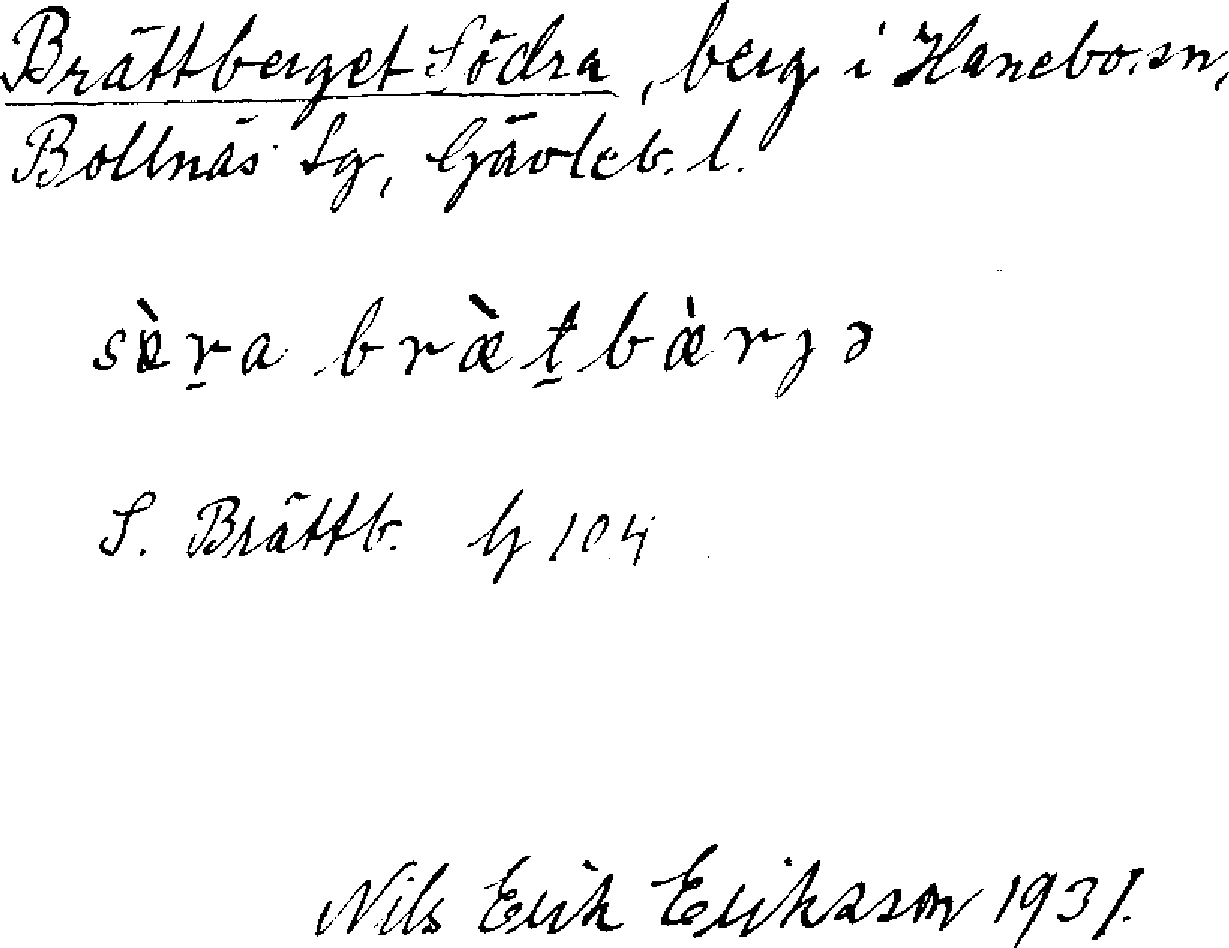 Brättberget Södra, berg i Hanebo sn,
Bollnäs Lg, Gävleb. l.
sæ̀r̠a bræ̀t̠bærȷə
S. Brättb. G 104
Nils Erik Eriksson 1937.